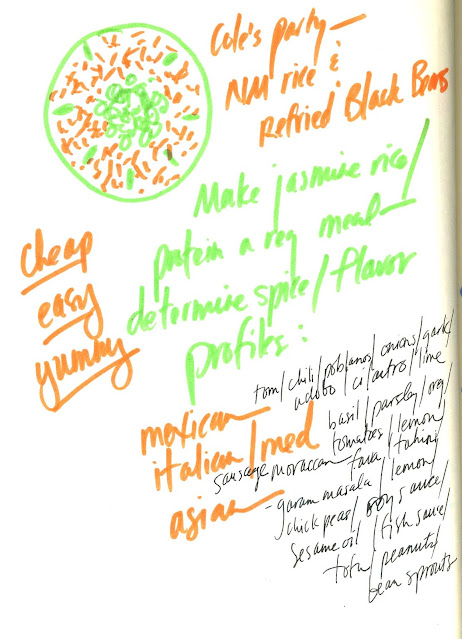 Cole's party —
NM rice &
Refried Black Beans
Make jasmine rice/
protein a reg meal —
determine spice/flavor
profiles:
cheap
easy
yummy
tom/chili/poblanos/onions/garlic/
adobo/cilantro/lime
mexican —
basil/parsley/org/
italian/med
tomatoes/lemon/
sausage moroccan — fava/tahini/
asian
- garam masala/lemon/
chick peas/soy sauce/
sesame oil/fish sauce/
tofu/peanuts/
bean sprouts